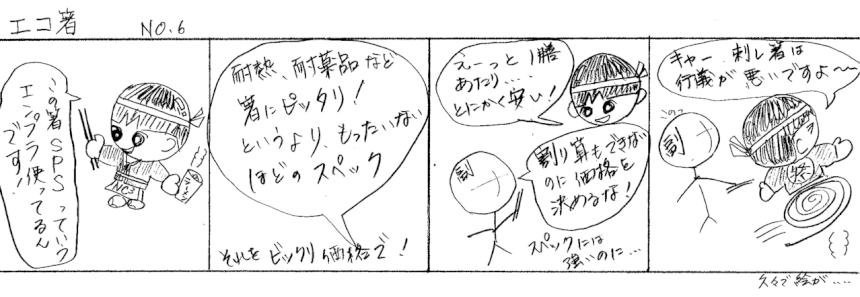 エコ箸
NO.6
この箸SPSっていう
エンプラ使ってるん
です!
耐熱、耐薬品など
箸にピッタリ!
というより、もったいない
ほどのスペック
それをビックリ価格で!
えーっと 1膳
あたり....
とにかく安い!
割
割り算もできない
のに価格を
決めるな!
スペックには
強いのに...
キャー 刺し箸は
行義が悪いですよ〜〜
割
祭
久々で絵が....